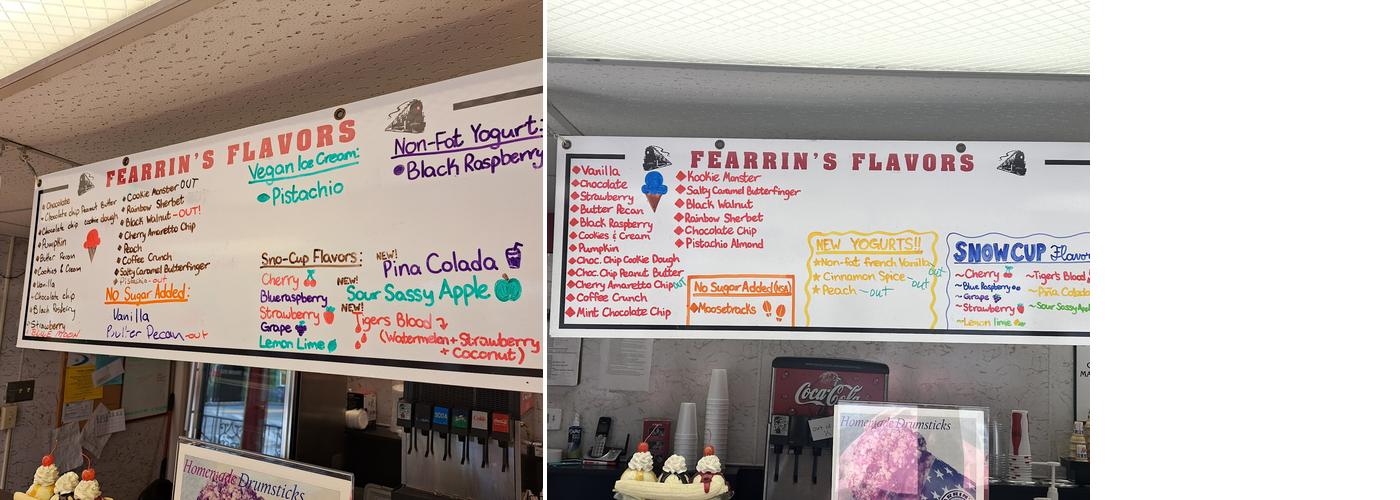 FEARRIN'S FLAVORS
Chocolate
Chocolate chip Peanut Butter
Chocolate chip cookie dough
Pumpkin
Butter Pecan
Cookies & Cream
Vanilla
Chocolate chip
Black Raspberry
Strawberry
BLUE MOON
Cookie Monster OUT
Rainbow Sherbet
Black Walnut -OUT!
Cherry Amaretto Chip
Peach
Coffee Crunch
Salty Caramel Butterfinger
Pistachio - out
No Sugar Added:
Vanilla
Butter Pecan -out
Vegan Ice Cream:
Pistachio
Non-Fat Yogurt:
Black Raspberry
Sno-Cup Flavors:
Cherry
Blueraspberry
Strawberry
Grape
Lemon Lime
NEW! Pina Colada
NEW! Sour Sassy Apple
NEW! Tigers Blood
(Watermelon + Strawberry
+ Coconut)
Homemade Drumsticks
FEARRIN'S FLAVORS
Vanilla
Chocolate
Strawberry
Butter Pecan
Black Raspberry
Cookies & Cream
Pumpkin
Choc. Chip Cookie Dough
Choc. Chip Peanut Butter
Cherry Amaretto Chip out
Coffee Crunch
Mint Chocolate Chip
Kookie Monster
Salty Caramel Butterfinger
Black Walnut
Rainbow Sherbet
Chocolate Chip
Pistachio Almond
No Sugar Added (NSA)
Moosetracks
NEW YOGURTS!!
Non-fat french Vanilla out
Cinnamon Spice - out
Peach - out
SNOWCUP Flavors
~Cherry
~Blue Raspberry
~Grape
~Strawberry
~Lemon lime
~Tiger's Blood
~Pina Colada
~Sour Sassy Apple
Coca-Cola
Homemade Drumsticks